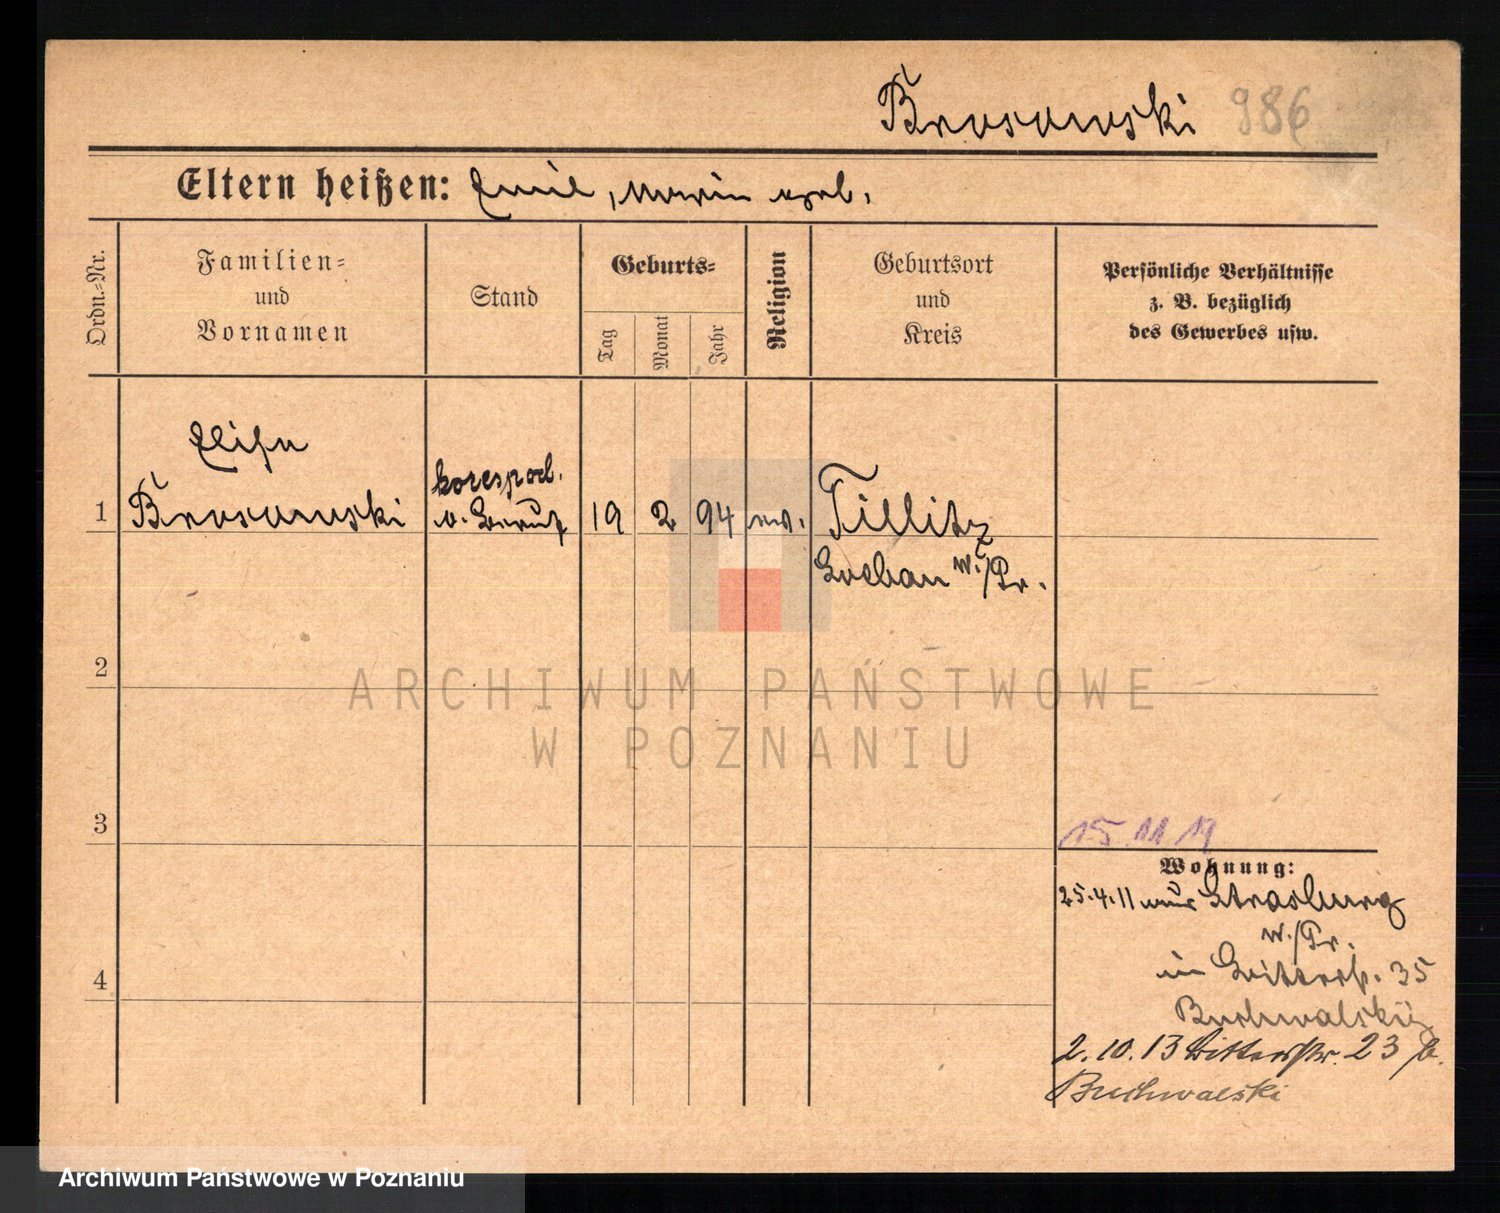 Brosowski 986
Eltern heißen: Emil, Maria geb.
Ordn.=Nr.
Familien=
und
Vornamen
Stand
Geburts=
Tag
Monat
Jahr
Religion
Geburtsort
und
Kreis
Persönliche Verhältnisse
z. B. bezüglich
des Gewerbes usw.
Brosowski
o. Beruf
1 19 2 94 ev. Tillitz
Loebau W./Pr.
2
3
4
15.11.19
Wohnung:
25.4.11 aus Strasburg
W./Pr.
in Ritterst. 35
Buchwalski
2.10.13 Ritterstr. 23
Buchwalski
ARCHIWUM PAŃSTWOWE
W POZNANIU
Archiwum Państwowe w Poznaniu